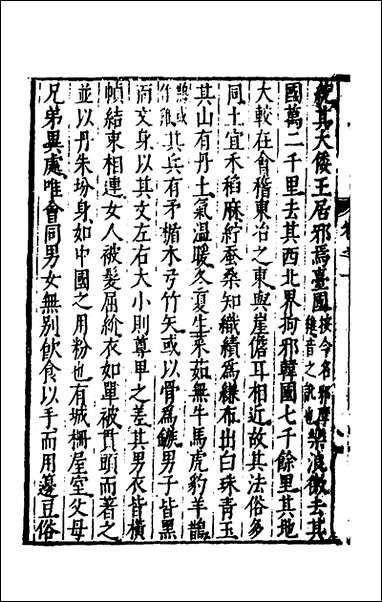 統其大倭王居邪馬臺國按今名邪摩堆音之訛也樂浪徼去其
國萬二千里去其西北界拘邪韓國七千餘里其地
大較在會稽東冶之東與崖儋耳相近故其法俗多
同土宜禾稻麻紵蠶桑知織績為縑布出白珠青玉
其山有丹土氣溫暖冬夏生菜茹無牛馬虎豹羊鵲
鵲或作雞其兵有矛楯木弓竹矢或以骨為鏃男子皆黥
面文身以其文左右大小則尊卑之差其男衣皆橫
幀結束相連女人被髮屈紒衣如單被貫頭而著之
並以丹朱坋身如中國之用粉也有城柵屋室父母
兄弟異處唯會同男女無別飲食以手而用籩豆俗